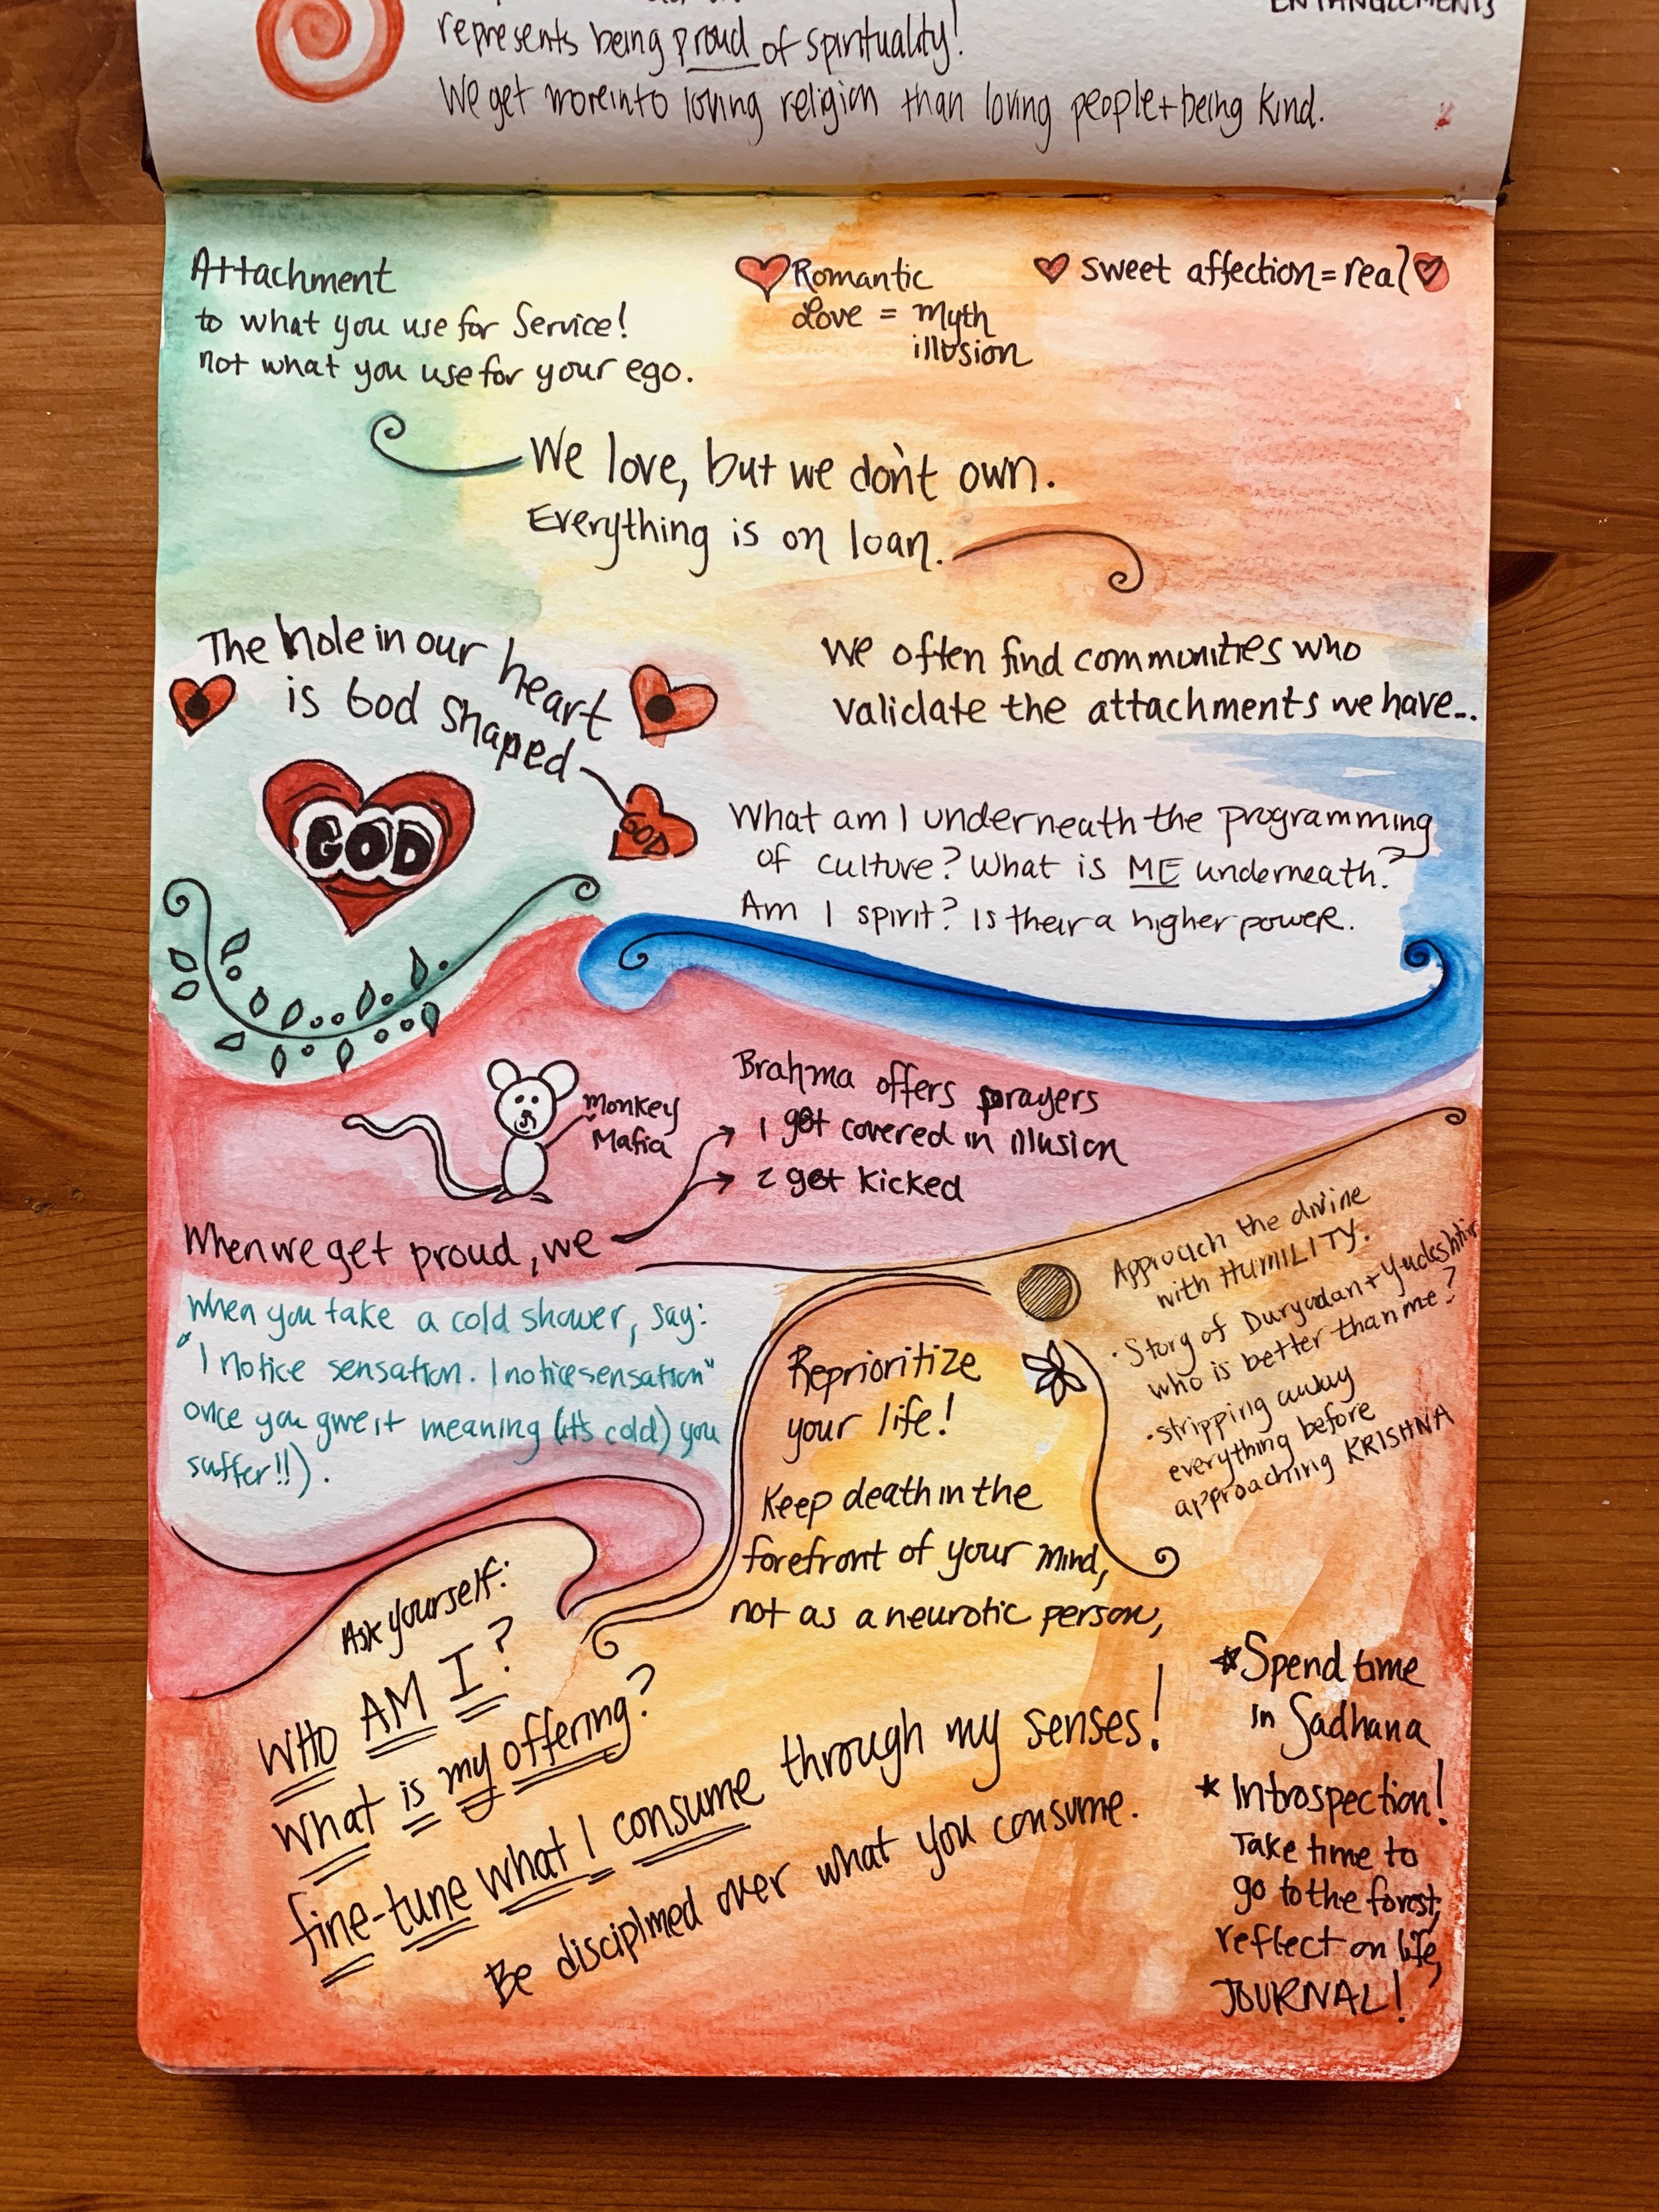 ENTANGLEMENTS
represents being proud of spirituality!
We get more into loving religion than loving people + being kind.
Attachment
to what you use for Service!
not what you use for your ego.
Romantic
Love = myth
illusion
sweet affection = real
We love, but we don't own.
Everything is on loan.
The hole in our heart
is God shaped
GOD
GOD
We often find communities who
validate the attachments we have...
What am I underneath the programming
of culture? What is ME underneath?
Am I spirit? Is their a higher power.
monkey
Mafia
When we get proud, we
Brahma offers prayers
1 get covered in illusion
2 get kicked
Approach the divine
with HUMILITY.
· Story of Duryodan + Yudeshtir
who is better than me?
· stripping away
everything before
approaching KRISHNA
When you take a cold shower, say:
"I notice sensation. I notice sensation"
once you give it meaning (it's cold) you
suffer!!).
Reprioritize
your life!
Keep death in the
forefront of your mind,
not as a neurotic person,
Ask yourself:
WHO AM I?
What is my offering?
fine-tune what I consume through my senses!
Be disciplined over what you consume.
* Spend time
in Sadhana
* Introspection!
Take time to
go to the forest,
reflect on life,
JOURNAL!